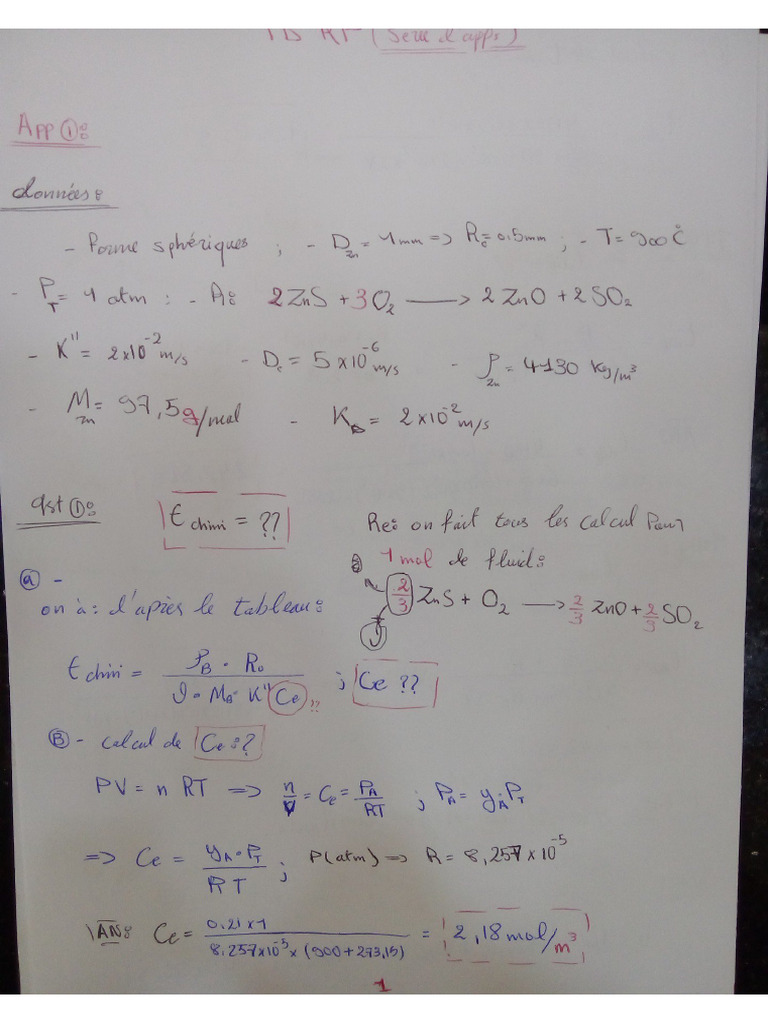 TD RP (Serie d'apps)
App ①:
données:
- Forme sphériques ; - D_Zn = 1mm => R_c = 0.5mm ; - T = 900°C
- P_T = 1 atm ; - A: 2ZnS + 3O₂ ⟶ 2ZnO + 2SO₂
- K'' = 2x10⁻² m/s - D_e = 5x10⁻⁶ m/s - ρ_Zn = 4130 Kg/m³
- M_Zn = 97,5g/mol - K_D = 2x10⁻² m/s
qst ①: t chimi = ?? Re: on fait tous les calcul Pour
1 mol de fluid:
ⓐ -
on à: d'après le tableau: 2/3 ZnS + O₂ ⟶ 2/3 ZnO + 2/3 SO₂
t chimi = ρ_B · R₀ / ϑ · M_B · K'' Ce ?? ; Ce ??
Ⓑ - calcul de Ce: ?
PV = n RT => n/V = Ce = P_A/RT ; P_A = y_A P_T
=> Ce = y_A · P_T / RT ; P(atm) => R = 8,257 x 10⁻⁵
\AN: Ce = 0.21 x 1 / 8.257x10⁻⁵ x (900 + 273,15) = 2,18 mol/m³
1